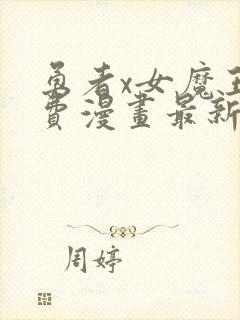 勇者x女魔王
費漫畫最新
周婷